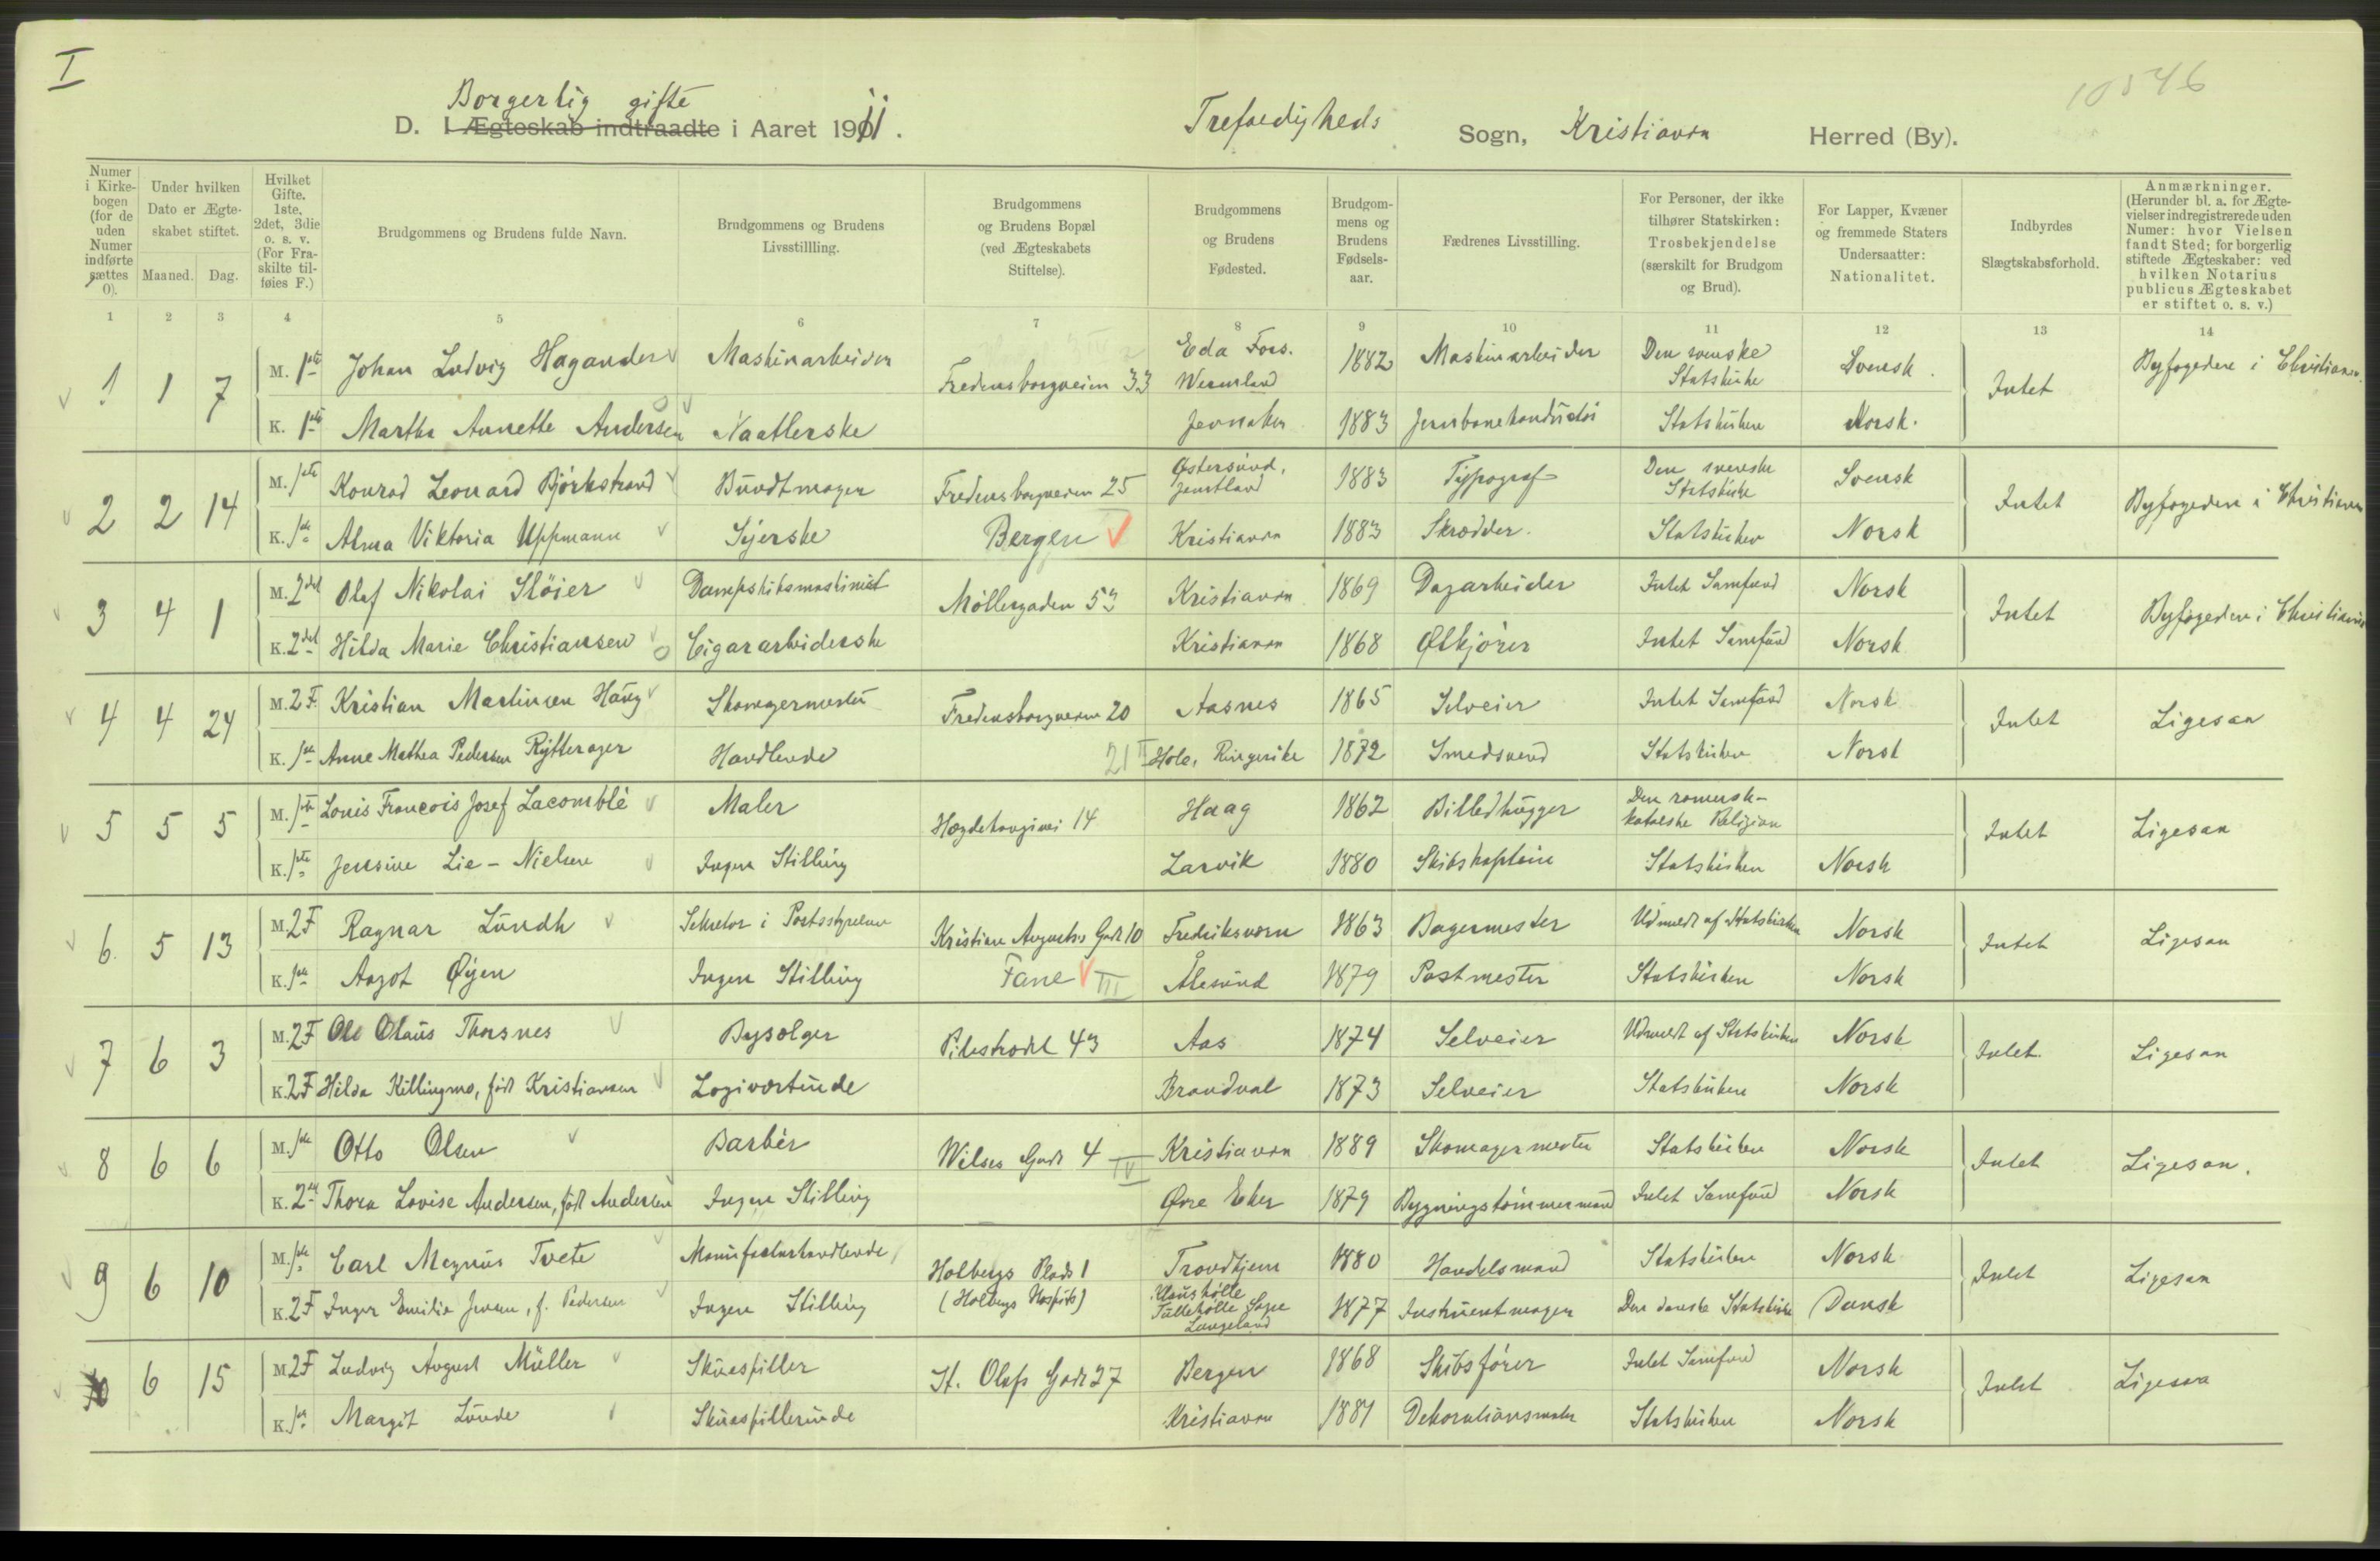 I
10546
Borgerlig gifte
D. I Ægteskab indtraadte i Aaret 1911.
Trefoldigheds Sogn, Kristiania Herred (By).
Numer i Kirkebogen (for de uden Numer indførte sættes 0).
Under hvilken Dato er Ægteskabet stiftet.
Maaned. Dag.
Hvilket Gifte. 1ste, 2det, 3die o. s. v. (For Fraskilte tilføies F.)
Brudgommens og Brudens fulde Navn.
Brudgommens og Brudens Livsstillling.
Brudgommens og Brudens Bopæl (ved Ægteskabets Stiftelse).
Brudgommens og Brudens Fødested.
Brudgommens og Brudens Fødselsaar.
Fædrenes Livsstilling.
For Personer, der ikke tilhører Statskirken: Trosbekjendelse (særskilt for Brudgom og Brud).
For Lapper, Kvæner og fremmede Staters Undersaatter: Nationalitet.
Indbyrdes Slægtskabsforhold.
Anmærkninger. (Herunder bl. a. for Ægtevielser indregistrerede uden Numer: hvor Vielsen fandt Sted; for borgerlig stiftede Ægteskaber: ved hvilken Notarius publicus Ægteskabet er stiftet o. s. v.)
1 2 3 4 5 6 7 8 9 10 11 12 13 14
1 1 7 M. 1ste Johan Ludvig Hagander Maskinarbeider Fredensborgveien 33 Eda Fors. Wermland 1882 Maskinarbeider Den svenske Statskirke Svensk. Intet Byfogeden i Christiania.
K. 1ste Martha Annette Andersen Naatlerske Jevnaker 1883 Jernbanekonduktør Statskirken Norsk.
2 2 14 M. 1ste Konrad Leonard Björkstrand Bundtmager Fredensborgveien 25 Østersund, Jemtland 1883 Typograf Den svenske Statskirke Svensk Intet Byfogeden i Christiania
K. 1ste Alma Viktoria Uppmann Syerske Bergen Kristiania 1883 Skrædder. Statskirken Norsk
3 4 1 M. 2det Olaf Nikolai Sløier Dampskibsmaskinist Møllergaden 53 Kristiania 1869 Dagarbeider Intet Samfund Norsk Intet Byfogeden i Christiania
K. 2det Hilda Marie Christiansen Cigararbeiderske Kristiania 1868 Ølkjører Intet Samfund Norsk
4 4 24 M. 2 F. Kristian Martinsen Haug Skomagermester Fredensborgveien 20 Aasnes 1865 Selveier Intet Samfund Norsk Intet Ligesaa
K. 1ste Anne Mathea Pedersen Rytterager Handlende 21 II Hole, Ringerike 1872 Smedsvend Statskirken Norsk
5 5 5 M. 1ste Louis Francois Josef Lacomblé Maler Hægdehaugsvei 14 Haag 1862 Billedhugger Den romersk-katolske Religion Intet Ligesaa
K. 1ste Jensine Lie-Nielsen Ingen Stilling Larvik 1880 Skibskaptein Statskirken Norsk
6. 5 13 M. 2 F Ragnar Lundh Sekretær i Poststyrelsen Kristian Augusts Gade 10 Fredriksværn 1863 Bagermester Udmeldt af Statskirken Norsk Intet Ligesaa
K. 1ste Aagot Øyen Ingen Stilling Fane III Ålesund 1879 Postmester Statskirken Norsk
7 6 3 M. 2 F Ole Olaus Thorsnes Bysælger Pilestrædet 43 Aas 1874 Selveier Udmeldt af Statskirken Norsk Intet. Ligesaa
K. 2 F Hilda Killingmo, født Kristiansen Logivertinde Brandval 1873 Selveier Statskirken Norsk
8 6 6 M. 1ste Otto Olsen Barbér Wilses Gade 4 IV Kristiania 1889 Skomagermester Statskirken Norsk Intet Ligesaa.
K. 2det Thora Lovise Andersen, født Andersen Ingen Stilling Øvre Eker 1879 Bygningstømmermand Intet Samfund Norsk
9 6 10 M. 1ste Carl Magnus Tvete Manufakturhandlende Holbergs Plads 1 (Holbergs Hospits) Trondhjem 1880 Handelsmand Statskirken Norsk Intet Ligesaa
K. 2 F Inger Emilie Jensen, f. Pedersen Ingen Stilling Langeland 1877 Instrumentmager Den danske Statskirke Dansk
10 6 15 M. 2 F Ludvig August Müller Skuespiller St. Olafs Gade 27 Bergen 1868 Skibsfører Intet Samfund Norsk Intet Ligesaa
K. 1ste Margit Lunde Skuespillerinde Kristiania 1881 Dekorationsmaler Statskirken Norsk